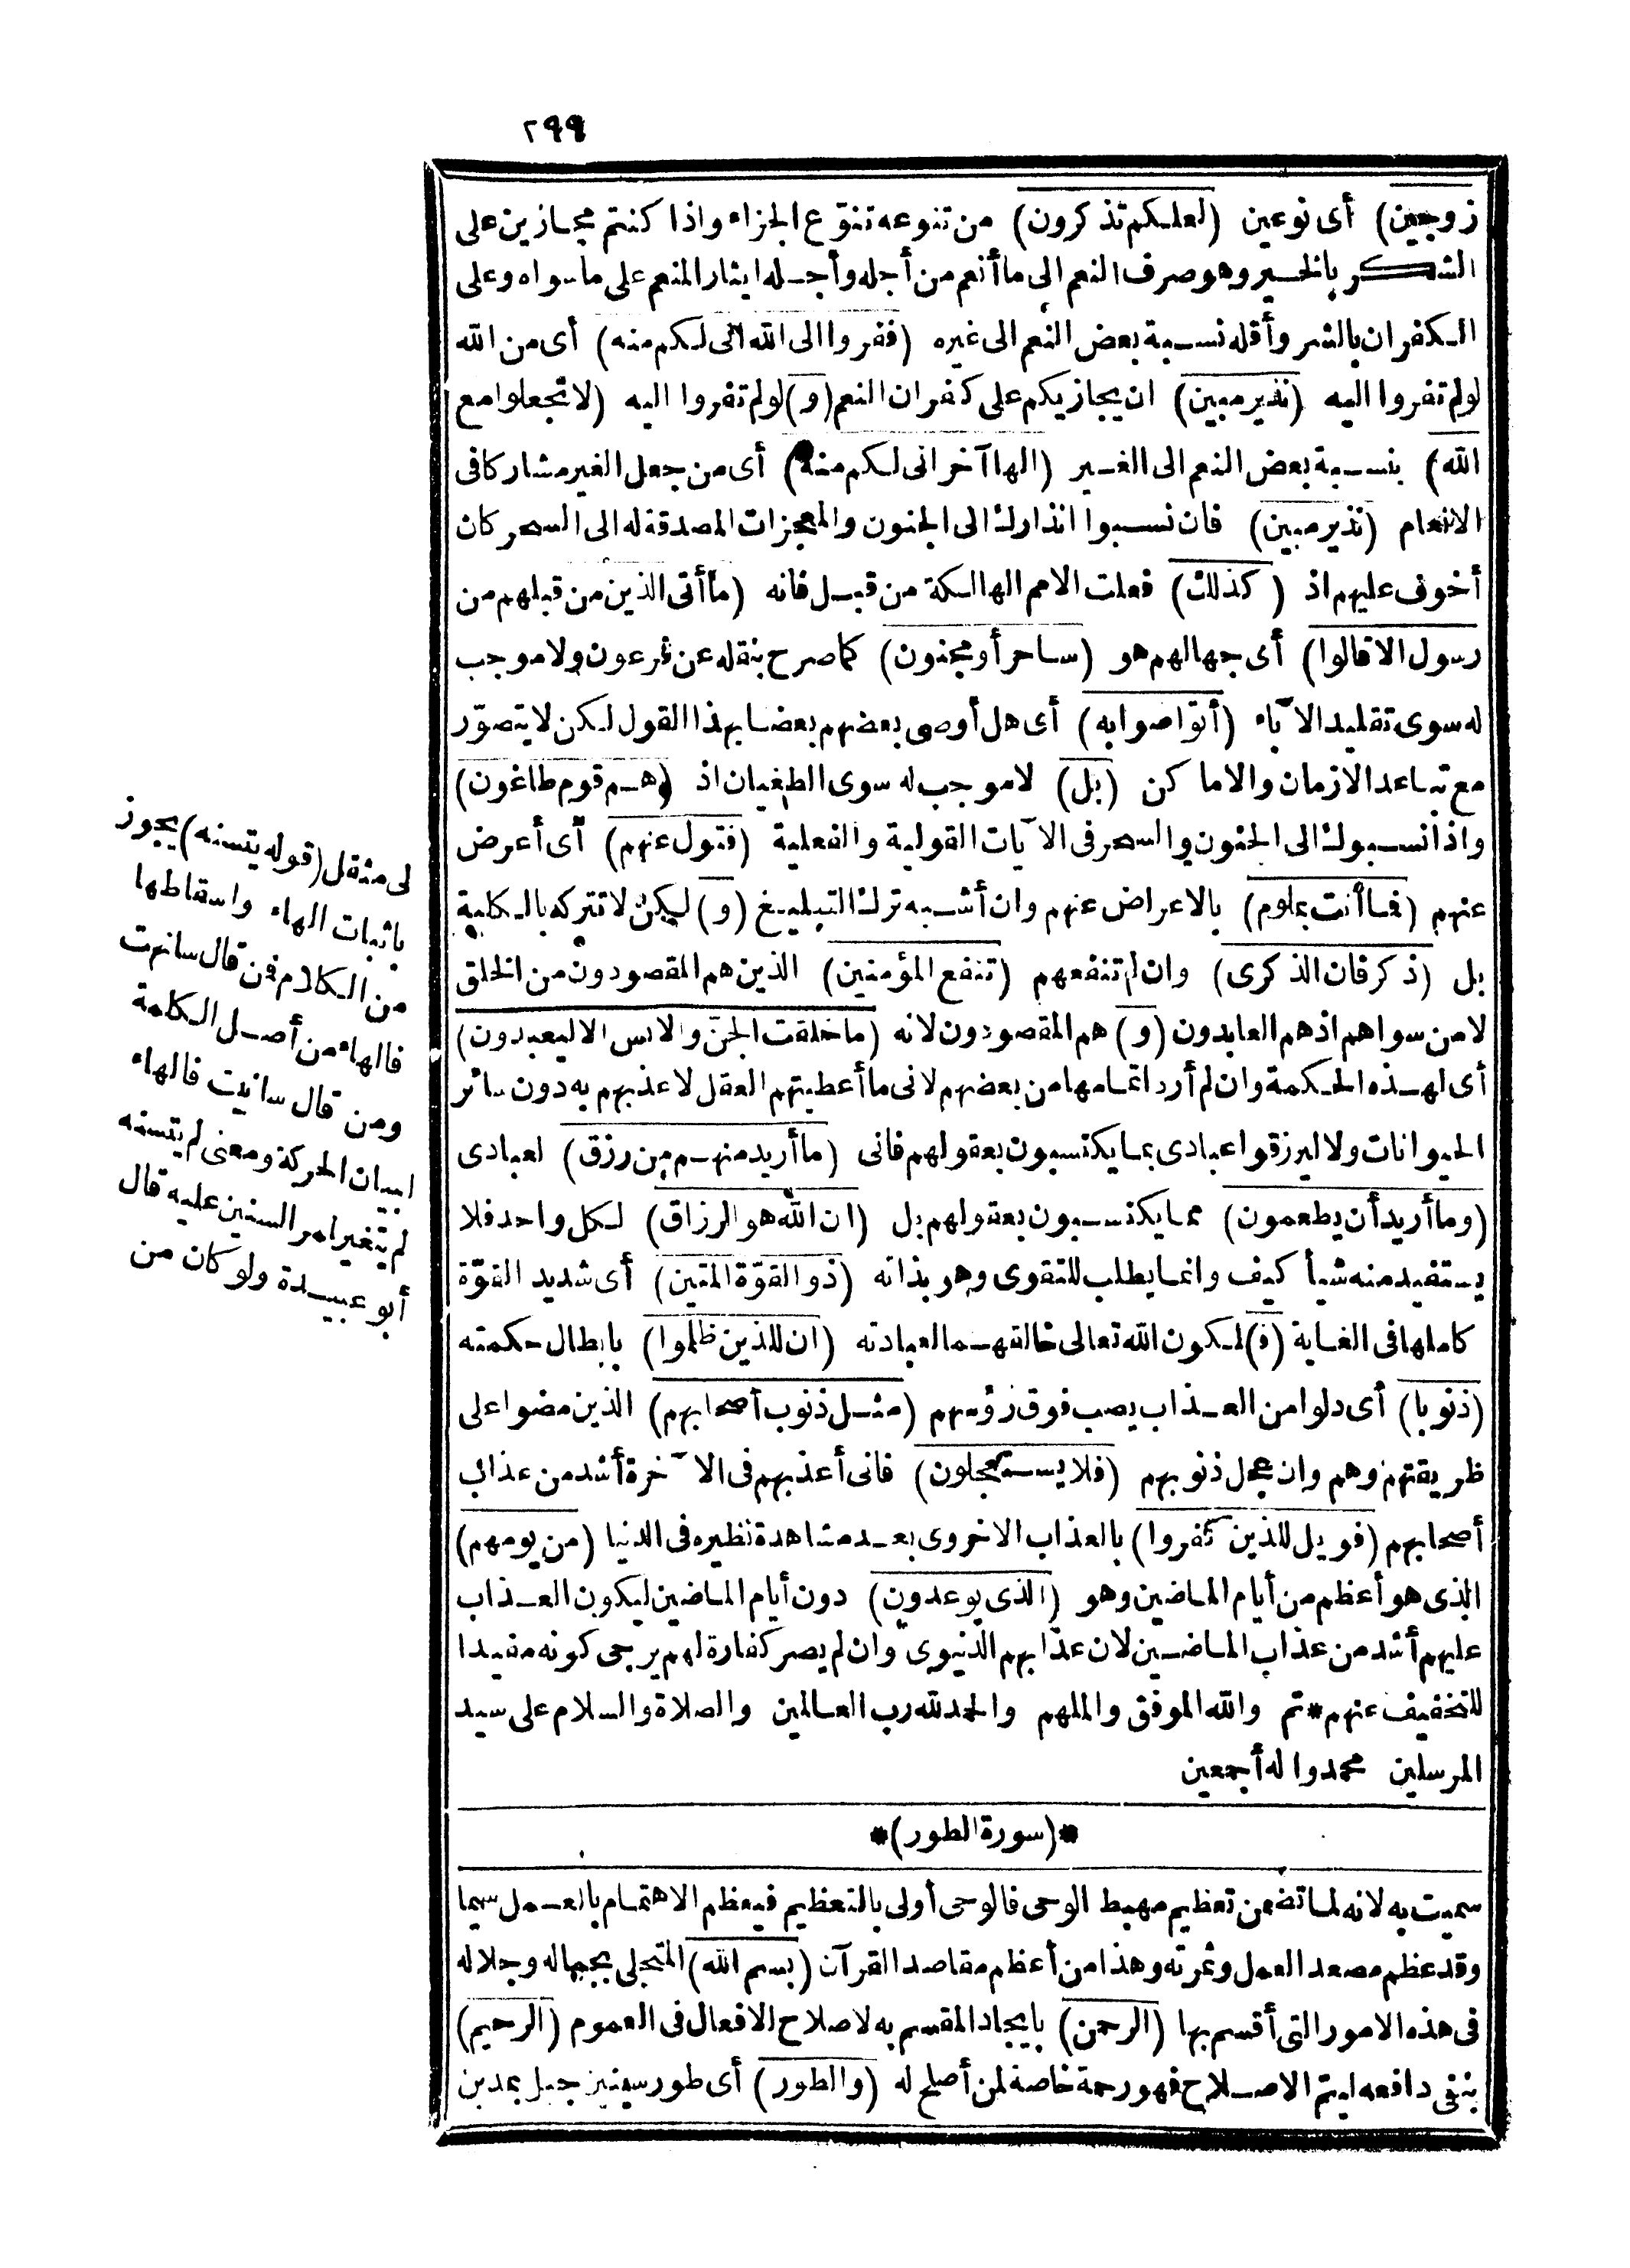 ٢٩٩
زوجين) أى نوعين (لعلكم تذكرون) من تنوعه تنوّع الجزاء واذا كنتم مجازين على
الشكر بالخير وهو صرف النعم الى ما أنعم من أجله وأجله ايثار المنعم على ما سواه وعلى
الكفران بالشر وأقله نسبة بعض النعم الى غيره (ففروا الى الله انى لكم منه) أى من الله
لو لم تفروا اليه (نذير مبين) ان يجازيكم على كفران النعم (و) لو لم تفروا اليه (لا تجعلوا مع
الله) بنسبة بعض النعم الى الغير (الها آخر انى لكم منه) أى من جعل الغير مشاركا فى
الانعام (نذير مبين) فان نسبوا انذارك الى الجنون والمعجزات المصدقة له الى السحر كان
أخوف عليهم اذ (كذلك) فعلت الامم الهالكة من قبل فانه (ما أتى الذين من قبلهم من
رسول الا قالوا) أى جهالهم هو (ساحر أو مجنون) كما صرح بنقله عن فرعون ولا موجب
له سوى تقليد الآباء (أتواصوا به) أى هل أوصى بعضهم بعضا بهذا القول لكن لا يتصوّر
مع تباعد الازمان والاماكن (بل) لا موجب له سوى الطغيان اذ (هم قوم طاغون)
واذا نسبوك الى الجنون والسحر فى الآيات القولية والفعلية (فتول عنهم) أى أعرض
عنهم (فما أنت بملوم) بالاعراض عنهم وان أشبه ترك التبليغ (و) لكن لا تتركه بالكلية
بل (ذكر فان الذكرى) وان لم تنفعهم (تنفع المؤمنين) الذين هم المقصودون من الخلق
لا من سواهم اذ هم العابدون (و) هم المقصودون لانه (ما خلقت الجنّ والانس الا ليعبدون)
أى لهذه الحكمة وان لم أرد اتمامها من بعضهم لانى ما أعطيتهم العقل لاعذبهم به دون سائر
الحيوانات ولا ليرزقوا عبادى بما يكتسبون بعقولهم فانى (ما أريد منهم من رزق) لعبادى
(وما أريد أن يطعمون) مما يكتسبون بعقولهم بل (ان الله هو الرزاق) لكل واحد فلا
يستفيد منه شيأ كيف وانما يطلب للتقوى وهو بذاته (ذو القوّة المتين) أى شديد القوّة
كاملها فى الغاية (ف) لكون الله تعالى خالقهما لعبادته (ان للذين ظلموا) بابطال حكمته
(ذنوبا) أى دلوا من العذاب يصب فوق رؤسهم (مثل ذنوب أصحابهم) الذين مضوا على
طريقتهم وهم وان عجل ذنوبهم (فلا يستعجلون) فانى أعذبهم فى الآخرة أشد من عذاب
أصحابهم (فويل للذين كفروا) بالعذاب الاخروى بعد مشاهدة نظيره فى الدنيا (من يومهم)
الذى هو أعظم من أيام الماضين وهو (الذى يوعدون) دون أيام الماضين ليكون العذاب
عليهم أشد من عذاب الماضين لان عذابهم الدنيوى وان لم يصر كفارة لهم يرجى كونه مفيدا
للتخفيف عنهم * تم والله الموفق والملهم والحمد لله رب العالمين والصلاة والسلام على سيد
المرسلين محمد واله أجمعين
*(سورة الطور)*
سميت به لانه لما تضمن تعظيم مهبط الوحى فالوحى أولى بالتعظيم فيعظم الاهتمام بالعمل سيما
وقد عظم مصعد العمل وثمرته وهذا من أعظم مقاصد القرآن (بسم الله) المتجلى بجماله وجلاله
فى هذه الامور التى أقسم بها (الرحمن) بايجاد المقسم به لاصلاح الافعال فى العموم (الرحيم)
بنفى دافعه ليتم الاصلاح فهو رحمة خاصة لمن أصلح له (والطور) أى طور سينين جبل بمدين
لى مثقل (قوله يتسنه) يجوز
باثبات الهاء واسقاطها
من الكلام فمن قال سانهت
فالهاء من أصل الكلمة
ومن قال سانيت فالهاء
لبيان الحركة ومعنى لم يتسنه
لم يتغير لمر السنين عليه قال
أبو عبيدة ولو كان من